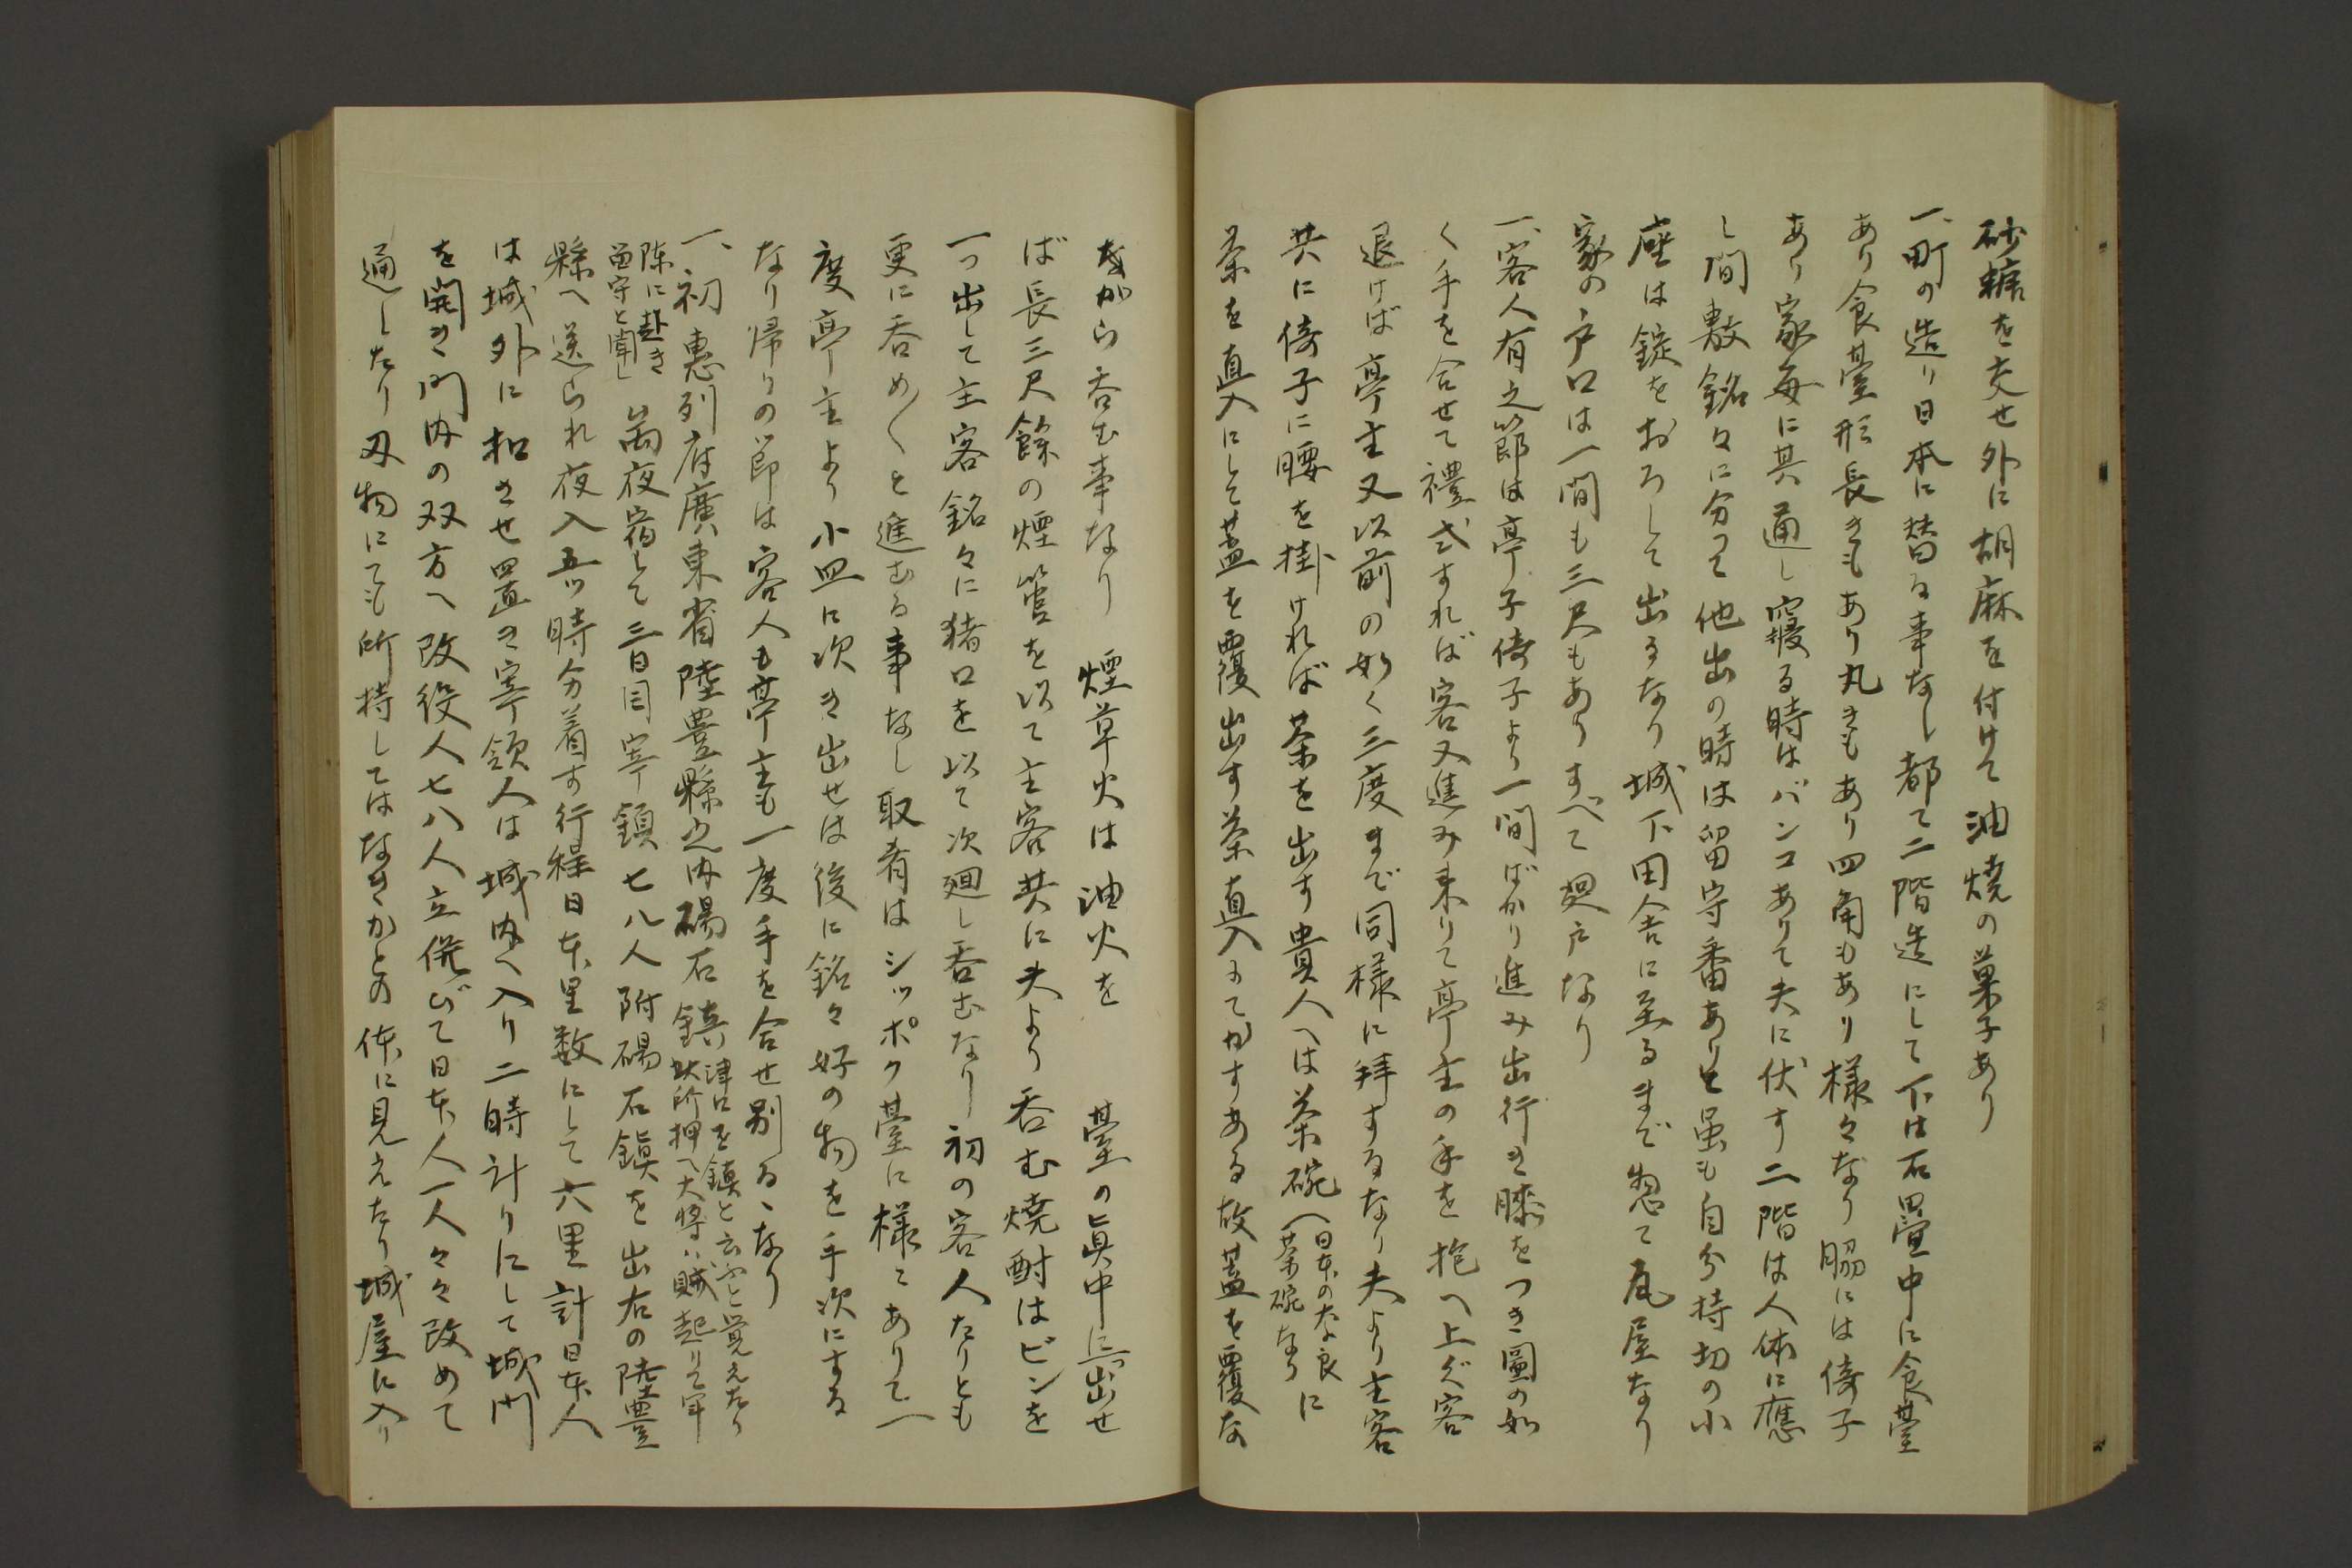 砂糖を交せ外に胡麻を付けて油焼の菓子あり
一、町の造り日本に替る事なし都て二階造にして下は石畳中に食䑓
あり食䑓形長きもあり丸きもあり四角もあり様々なり脇には倚子
あり家毎に其通し寝る時はバンコありて夫に伏す二階は人体に應
し間敷銘々に分つて他出の時は留守番ありと虽も自分持切の小
座は錠をおろして出るなり城下田舎に至るまで惣て瓦屋なり
家の戸口は一間も三尺もありすべて廻戸なり
一、客人有之節は亭子倚子より一間ばかり進み出行き膝をつき圖の如
く手を合せて禮式すれば客又進み来りて亭主の手を抱へ上ぐ客
退けば亭主又以前の如く三度まで同様に拜するなり夫より主客
共に倚子に腰を掛ければ茶を出す貴人へは茶碗(日本のな良茶碗なり)に
茶を直入にして蓋を覆出す茶直入にてかすある故蓋を覆な
ながら呑む事なり 煙草火は油火を 䑓の眞中に一つ出せ
ば長三尺餘の煙管を以て主客共に夫より呑む焼酎はビンを
一つ出して主客銘々に猪口を以て次廻し呑むなり初の客人たりとも
更に呑め〱と進むる事なし取肴はシッポク䑓に様々ありて一
度亭主より小皿に次き出せは後に銘々好の物を手次にする
なり帰りの節は客人も亭主も一度手を合せ別るゝなり
一、初惠列府廣東省陸豊縣之内碣石鎮津口を鎮と云ふと覚えたり此所押へ大将は賊起りて軍
陳に赴き留守と聞し 両夜宿して三日目宰領七八人附碣石鎮を出右の陸豊
縣へ送られ夜入五ツ時分着す行程日本里数にして六里計日本人
は城外に扣させ置き宰領人は城内へ入り二時計りにして城門
を開き門内の双方へ改役人七八人立併びて日本人一人々々改めて
通したり刃物にても所持してはなきかとの体に見えたり城屋に入り